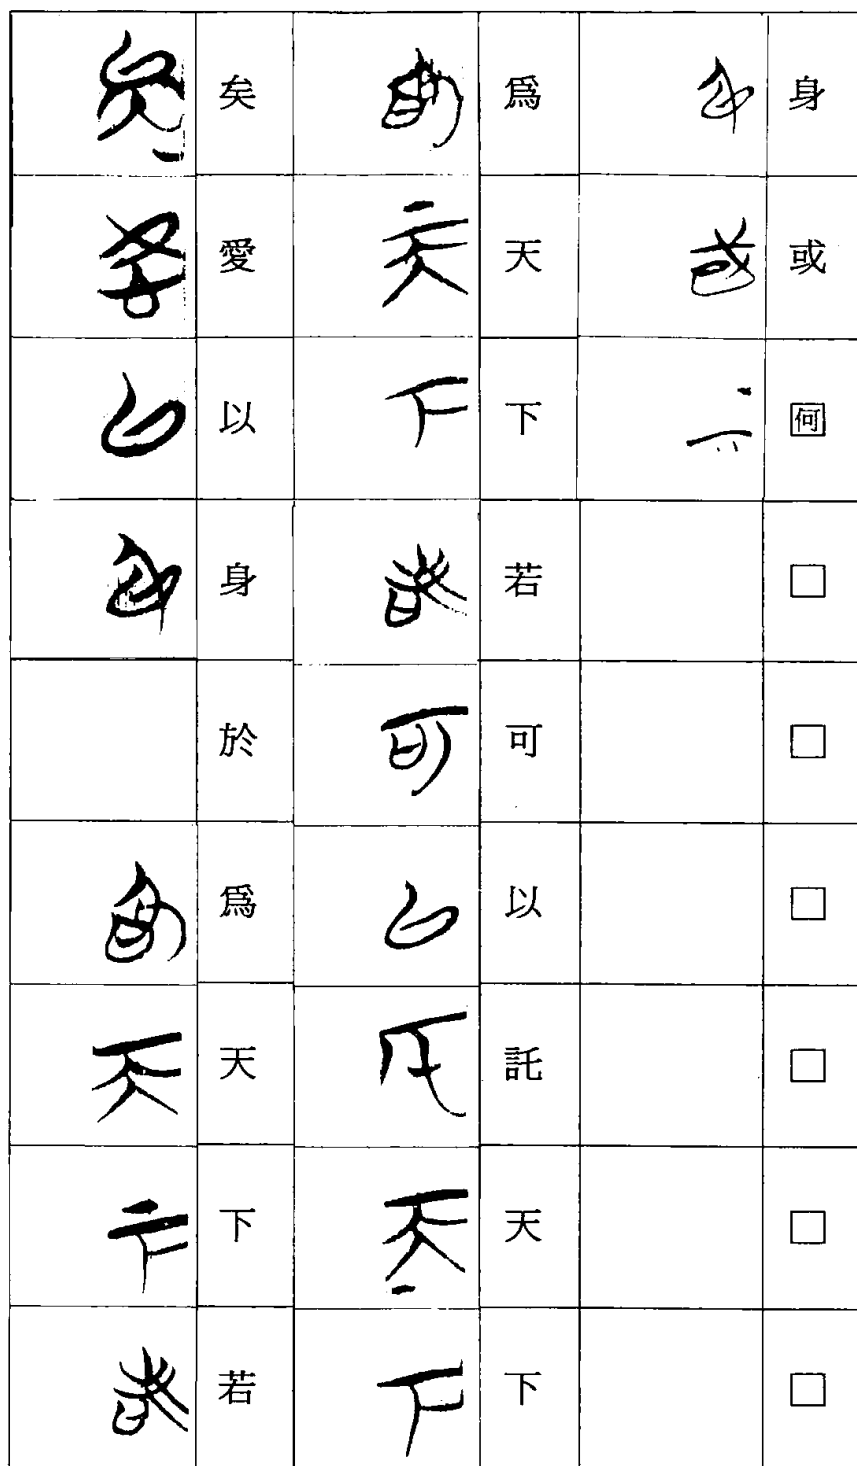 身或何□□□□□□
爲天下若可以託天下
矣愛以身於爲天下若